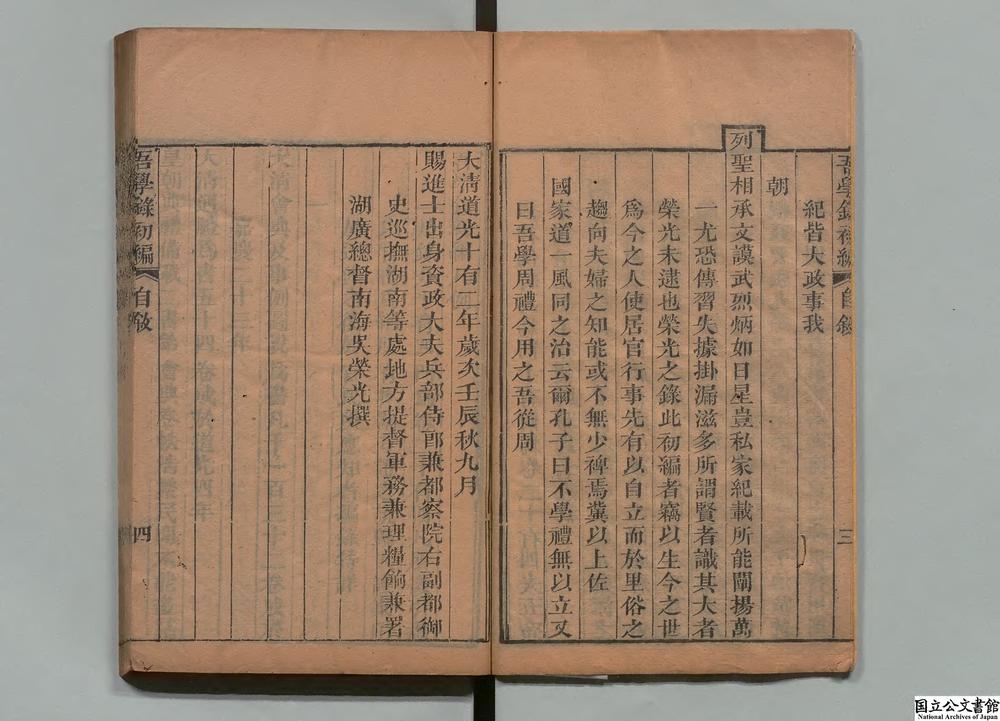 吾學錄初編
自敘
三
紀皆大政事我
朝
列聖相承文謨武烈炳如日星豈私家紀載所能闡揚萬
一尤恐傳習失據掛漏滋多所謂賢者識其大者
榮光未逮也榮光之錄此初編者竊以生今之世
爲今之人使居官行事先有以自立而於里俗之
趨向夫婦之知能或不無少裨焉冀以上佐
國家道一風同之治云爾孔子曰不學禮無以立又
曰吾學周禮今用之吾從周
大清道光十有二年歲次壬辰秋九月
賜進士出身資政大夫兵部侍郎兼都察院右副都御
史巡撫湖南等處地方提督軍務兼理糧餉兼署
湖廣總督南海吳榮光撰
吾學錄初編
自敘
四
国立公文書館
National Archives of Japan